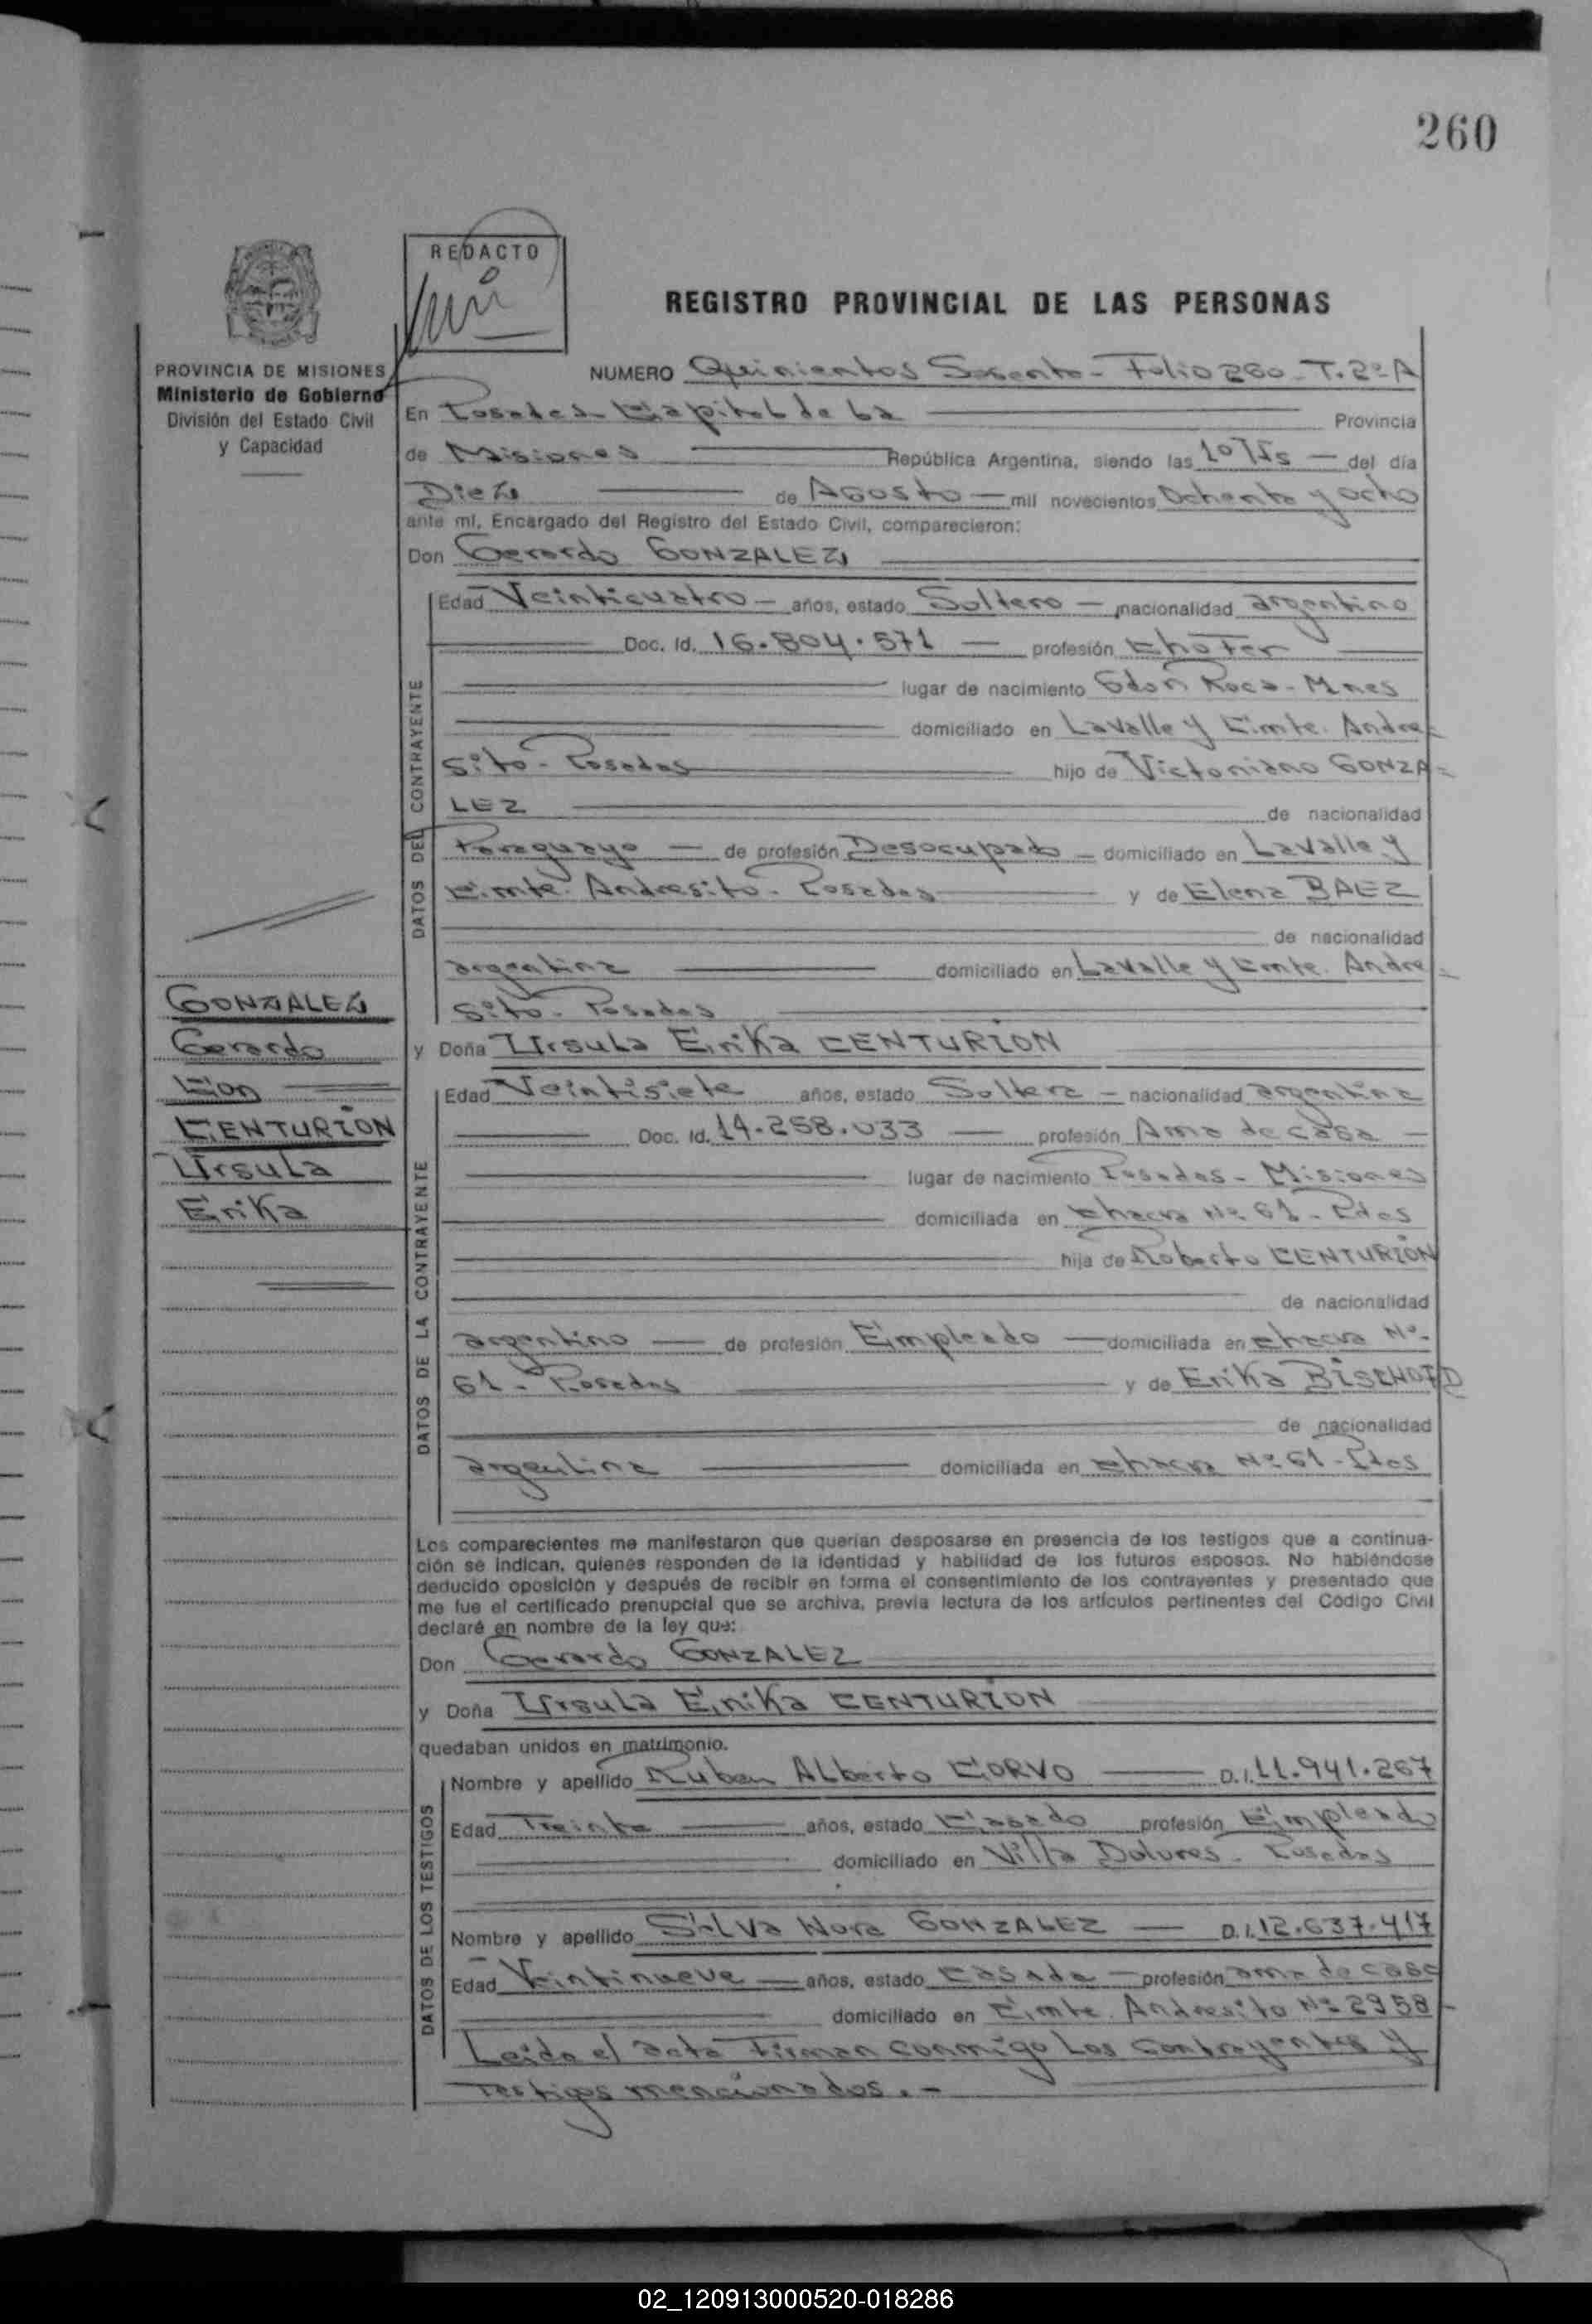 260
REDACTO
REGISTRO PROVINCIAL DE LAS PERSONAS
PROVINCIA DE MISIONES
Ministerio de Gobierno
División del Estado Civil
y Capacidad
NUMERO Quinientos Sesenta - Folio 260 - T. 2º A
En Posadas Capital de La Provincia
de Misiones República Argentina, siendo las 10 del día
Diez de Agosto mil novecientos Ochenta y ocho
ante mí, Encargado del Registro del Estado Civil, comparecieron:
Don Gerardo GONZALEZ
DATOS DEL CONTRAYENTE
Edad Veinticuatro años, estado Soltero nacionalidad argentino
Doc. Id. 16.804.571 profesión Chofer
lugar de nacimiento Gdor Roca - Mnes
domiciliado en Lavalle y Cmte. Andre=
sito - Posadas hijo de Victoriano GONZA=
LEZ de nacionalidad
Paraguayo de profesión Desocupado domiciliado en Lavalle y
Cmte. Andresito - Posadas y de Elena BAEZ
de nacionalidad
argentina domiciliado en Lavalle y Cmte. Andre=
sito - Posadas
y Doña Ursula Erika CENTURION
GONZALEZ
Gerardo
Con
CENTURION
Ursula
Erika
DATOS DE LA CONTRAYENTE
Edad Veintisiete años, estado Soltera nacionalidad argentina
Doc. Id. 14.258.033 profesión Ama de casa
lugar de nacimiento Posadas - Misiones
domiciliada en Chacra Nº 61 - Pdas
hija de Roberto CENTURION
de nacionalidad
argentino de profesión Empleado domiciliada en Chacra Nº
61 - Posadas y de Erika
de nacionalidad
argentina domiciliada en Chacra Nº 61 - Pdas
Los comparecientes me manifestaron que querían desposarse en presencia de los testigos que a continua-
ción se indican, quienes responden de la identidad y habilidad de los futuros esposos. No habiéndose
deducido oposición y después de recibir en forma el consentimiento de los contrayentes y presentado que
me fue el certificado prenupcial que se archiva, previa lectura de los artículos pertinentes del Código Civil
declaré en nombre de la ley que:
Don Gerardo GONZALEZ
y Doña Ursula Erika CENTURION
quedaban unidos en matrimonio.
DATOS DE LOS TESTIGOS
Nombre y apellido Ruben Alberto CORVO D.I. 11.941.267
Edad Treinta años, estado Casado profesión Empleado
domiciliado en Villa Dolores - Posadas
Nombre y apellido Silva Nora GONZALEZ D.I. 12.637.417
Edad Veintinueve años, estado Casada profesión ama de casa
domiciliado en Cmte. Andresito Nº 2958
Leida el acta Firman conmigo Los Contrayentes y
Testigos mencionados. -
02_120913000520-018286